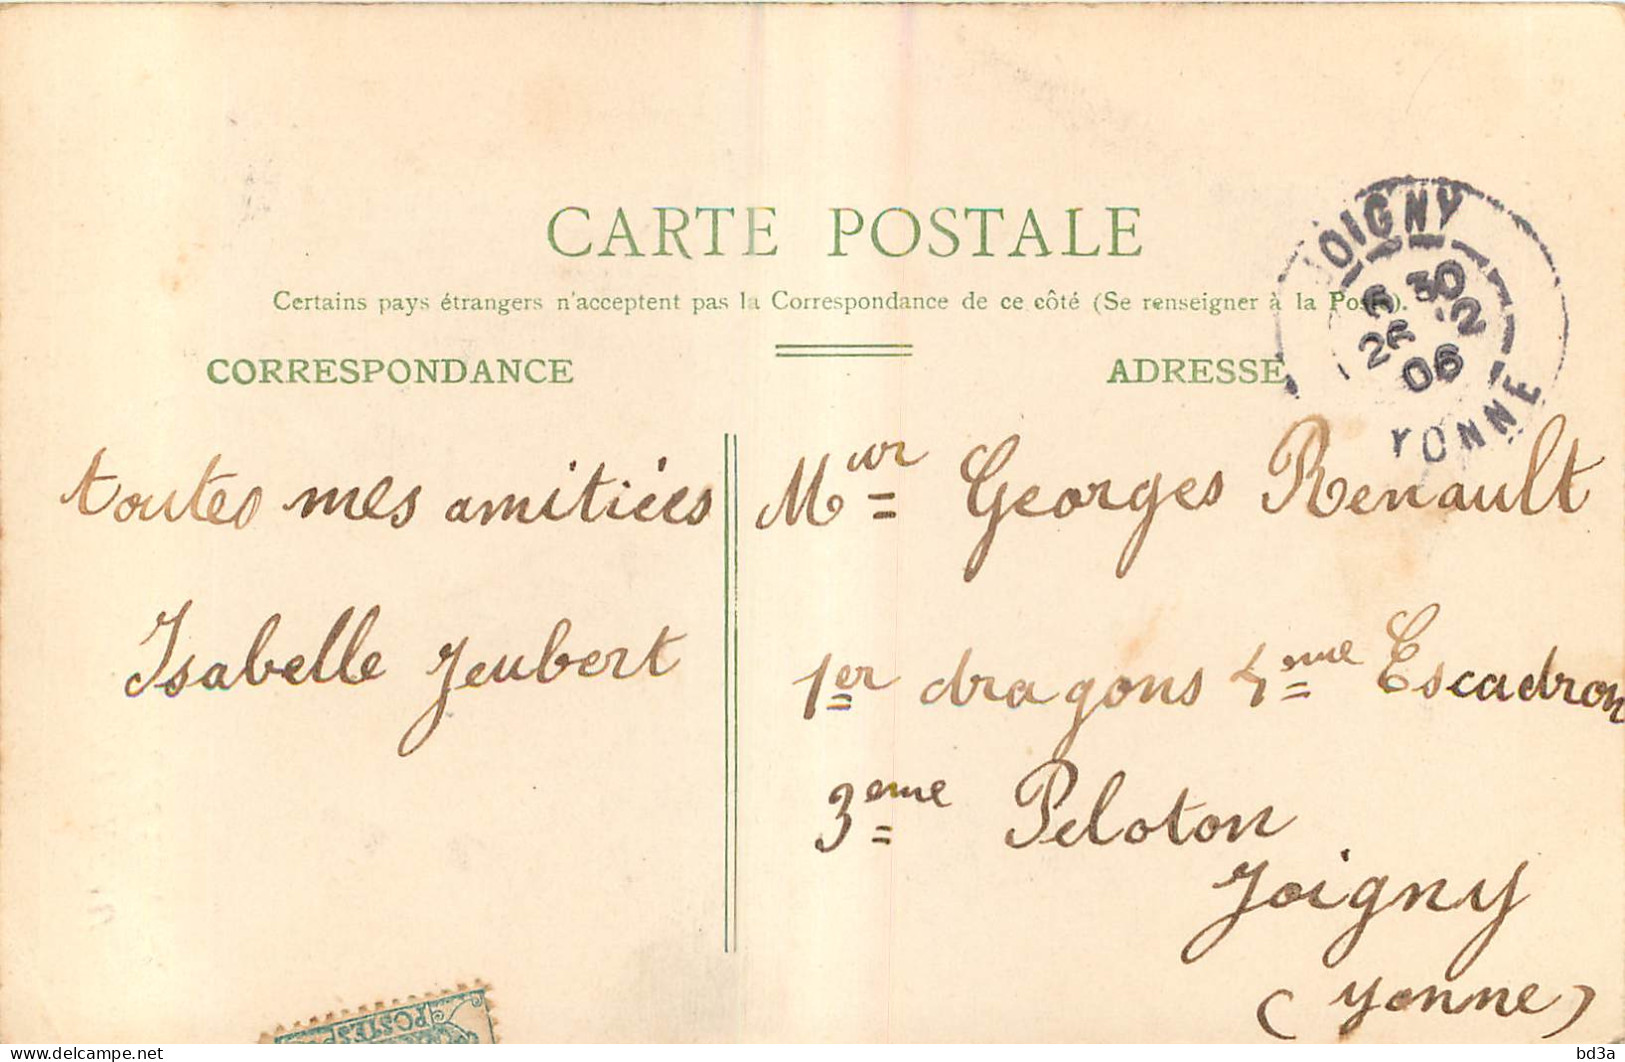 CARTE POSTALE
Certains pays étrangers n'acceptent pas la Correspondance de ce côté (Se renseigner à la Poste).
CORRESPONDANCE
toutes mes amitiées
Isabelle Jeubert
ADRESSE
M^eur Georges Renault
1er dragons 4^eme Escadron
3^eme Peloton
Joigny
(Yonne)
JOIGNY
30
26 2
06
YONNE
POSTES
delcampe.net
bd3a